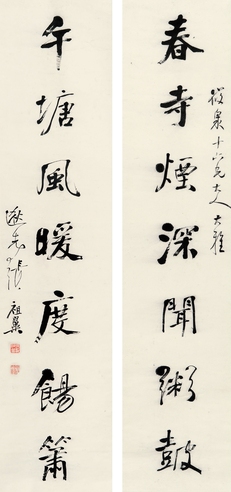 筱泉十六兄大人大雅
春寺煙深聞粥鼓
午塘風暖度餳簫
逖先張祖翼